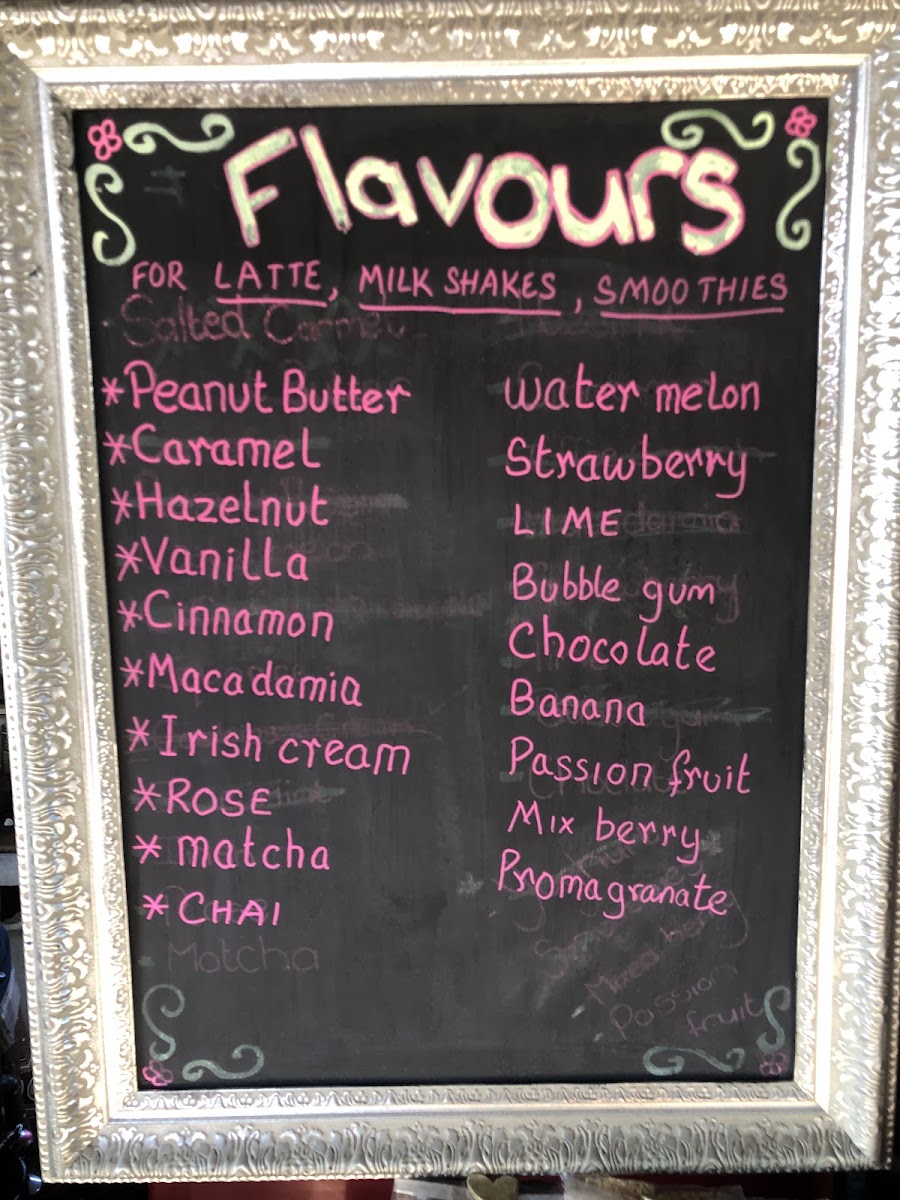 Flavours
FOR LATTE, MILK SHAKES, SMOOTHIES
Salted Carmel
*Peanut Butter
*Caramel
*Hazelnut
*Vanilla
*Cinnamon
*Macadamia
*Irish cream
*ROSE
* matcha
*CHAI
Matcha
Water melon
Strawberry
LIME
Bubble gum
Chocolate
Banana
Passion fruit
Mix berry
Promagranate
Mixed berry
Passion
fruit